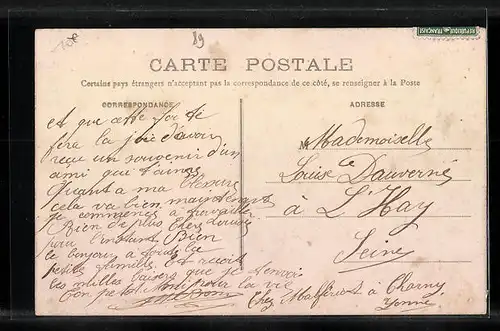 89
CARTE POSTALE
Certains pays étrangers n'acceptant pas la correspondance de ce côté, se renseigner à la Poste
CORRESPONDANCE
et que cette foi té
fera la joie d'avoir
reçue un souvenir d'un
ami qui t'aime
Quant a ma blessure
cela va bien maintenant
je commence a travailler
Bien de plus cher Louise
pour l'instant Bien
le bonjour a toute la
petite famille et recoit
les milles baisers que je t'envoi
Ton petit ami pour la vie
ADRESSE
Mademoiselle
Louise Dauverné
à L'Hay
Seine
Chez Malfériot à Charny
Yonne